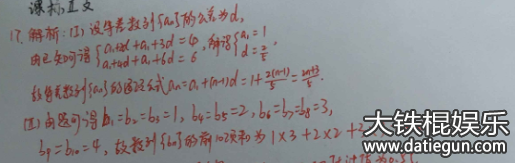 课标,正文
17. 解析:(I) 设等差数列{an}的公差为d,
由已知可得 {a₁+2d+a₁+3d=4, a₁+4d+a₁+6d=6 解得 {a₁=1, d=2/5.
故等差数列{an}的通项公式 an=a₁+(n-1)d=1+2(n-1)/5=2n+3/5.
(II) 由题可得 b₁=b₂=b₃=1, b₄=b₅=2, b₆=b₇=b₈=3,
b₉=b₁₀=4, 故数列{bn}的前10项和为1×3+2×2+
大铁棍娱乐
www.datiegun.com